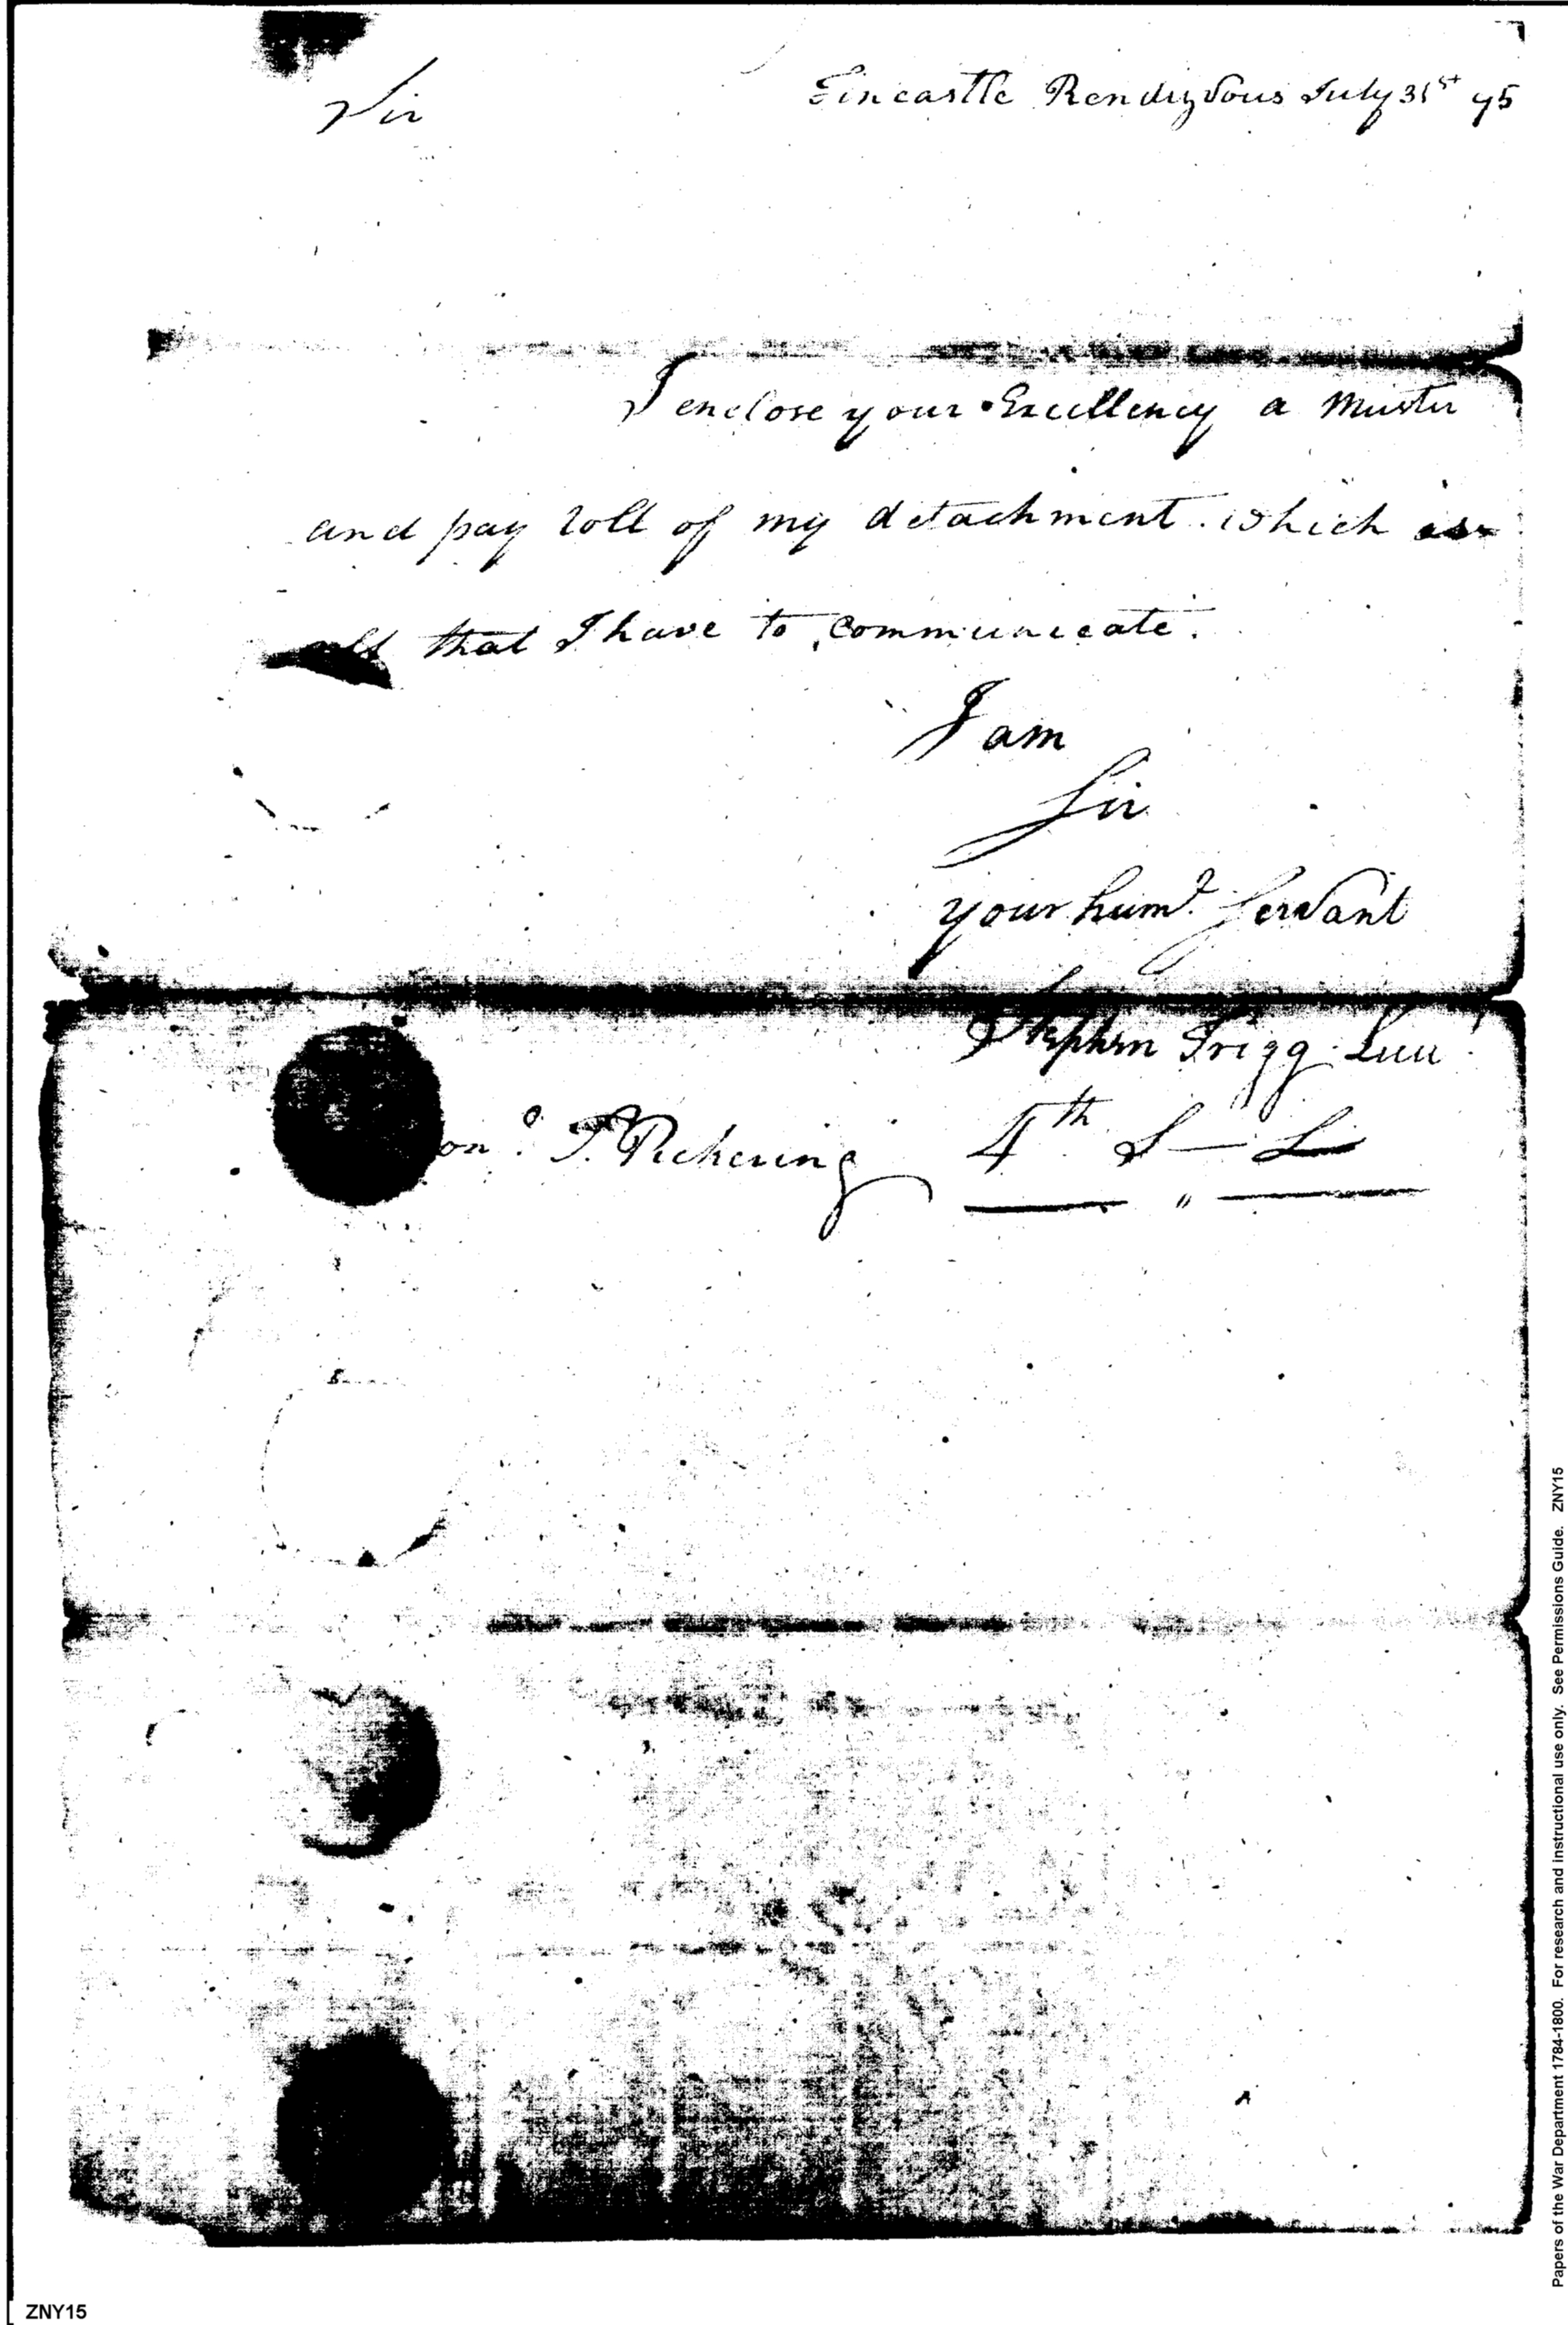 Fincastle Rendizvous July 31st 95
Sir
I enclose your Excellency a Muster
and pay roll of my detachment. which is
all that I have to communicate.
I am
Sir
your hume. Servant
Stephen Trigg Lieu
4th S — L
ono. T. Pickering
Papers of the War Department 1784-1800. For research and instructional use only. See Permissions Guide. ZNY15
ZNY15